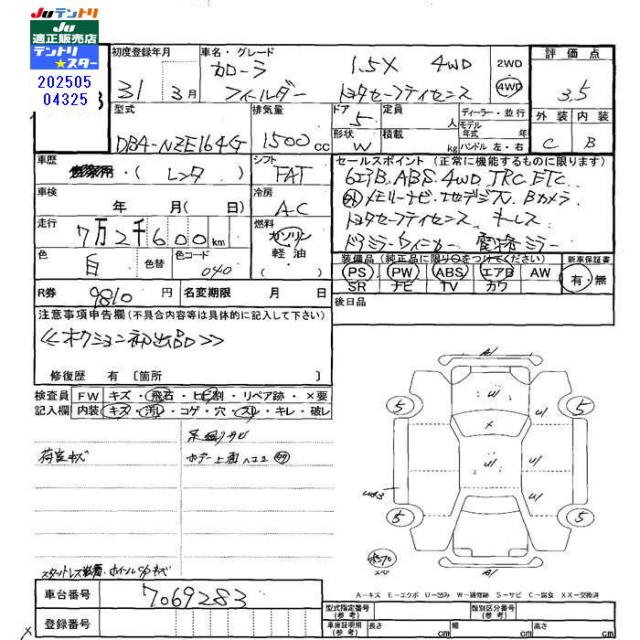 JUテントリ
JU
適正販売店
テントリ
★スター
202505
04325
初度登録年月
31年 3月
車名・グレード
カローラ フィールダー
1.5X 4WD
トヨタセーフティセンス
2WD
4WD
評価点
3.5
型式
DBA-NZE164G
排気量
1500cc
ドア 5
形状 W
定員 人
積載 kg
ディーラー・並行
モデル年式 年
ハンドル 左・右
外装 内装
C B
車歴
(レンタ)
シフト
FAT
セールスポイント(正常に機能するものに限ります)
6エアB、ABS、4WD、TRC、ETC
メモリーナビ、Bカメラ
トヨタセーフティセンス キーレス
ドアミラーウィンカー 電格ミラー
車検
年 月(日)
冷房
AC
走行
7万2千600km
燃料
ガソリン
軽油
( )
色
白
色替
色コード
040
装備品(純正品に限り○をつけてください)
PS PW ABS エアB AW
SR ナビ TV カワ
新車保証書
有・無
R券 9810円
名変期限 月 日
後日品
注意事項申告欄(不具合内容等は具体的に記入して下さい)
<<オークション初出品>>
修復歴 有〔箇所 〕
検査員記入欄
FW キズ・飛石・ヒビ割・リペア跡・×要
内装 キズ・汚レ・コゲ・穴・スレ・キレ・破レ
荷室キズ
A/
5 5
5 5
U/
×
U/
U/
U/
A/
A-キズ E-エクボ U-凹み W-補修跡 S-サビ C-腐食 XX-交換済
車台番号
7069283
登録番号
型式指定番号(参考)
類別区分番号(参考)
車庫証明用(参考)
長さ cm
幅 cm
高さ cm